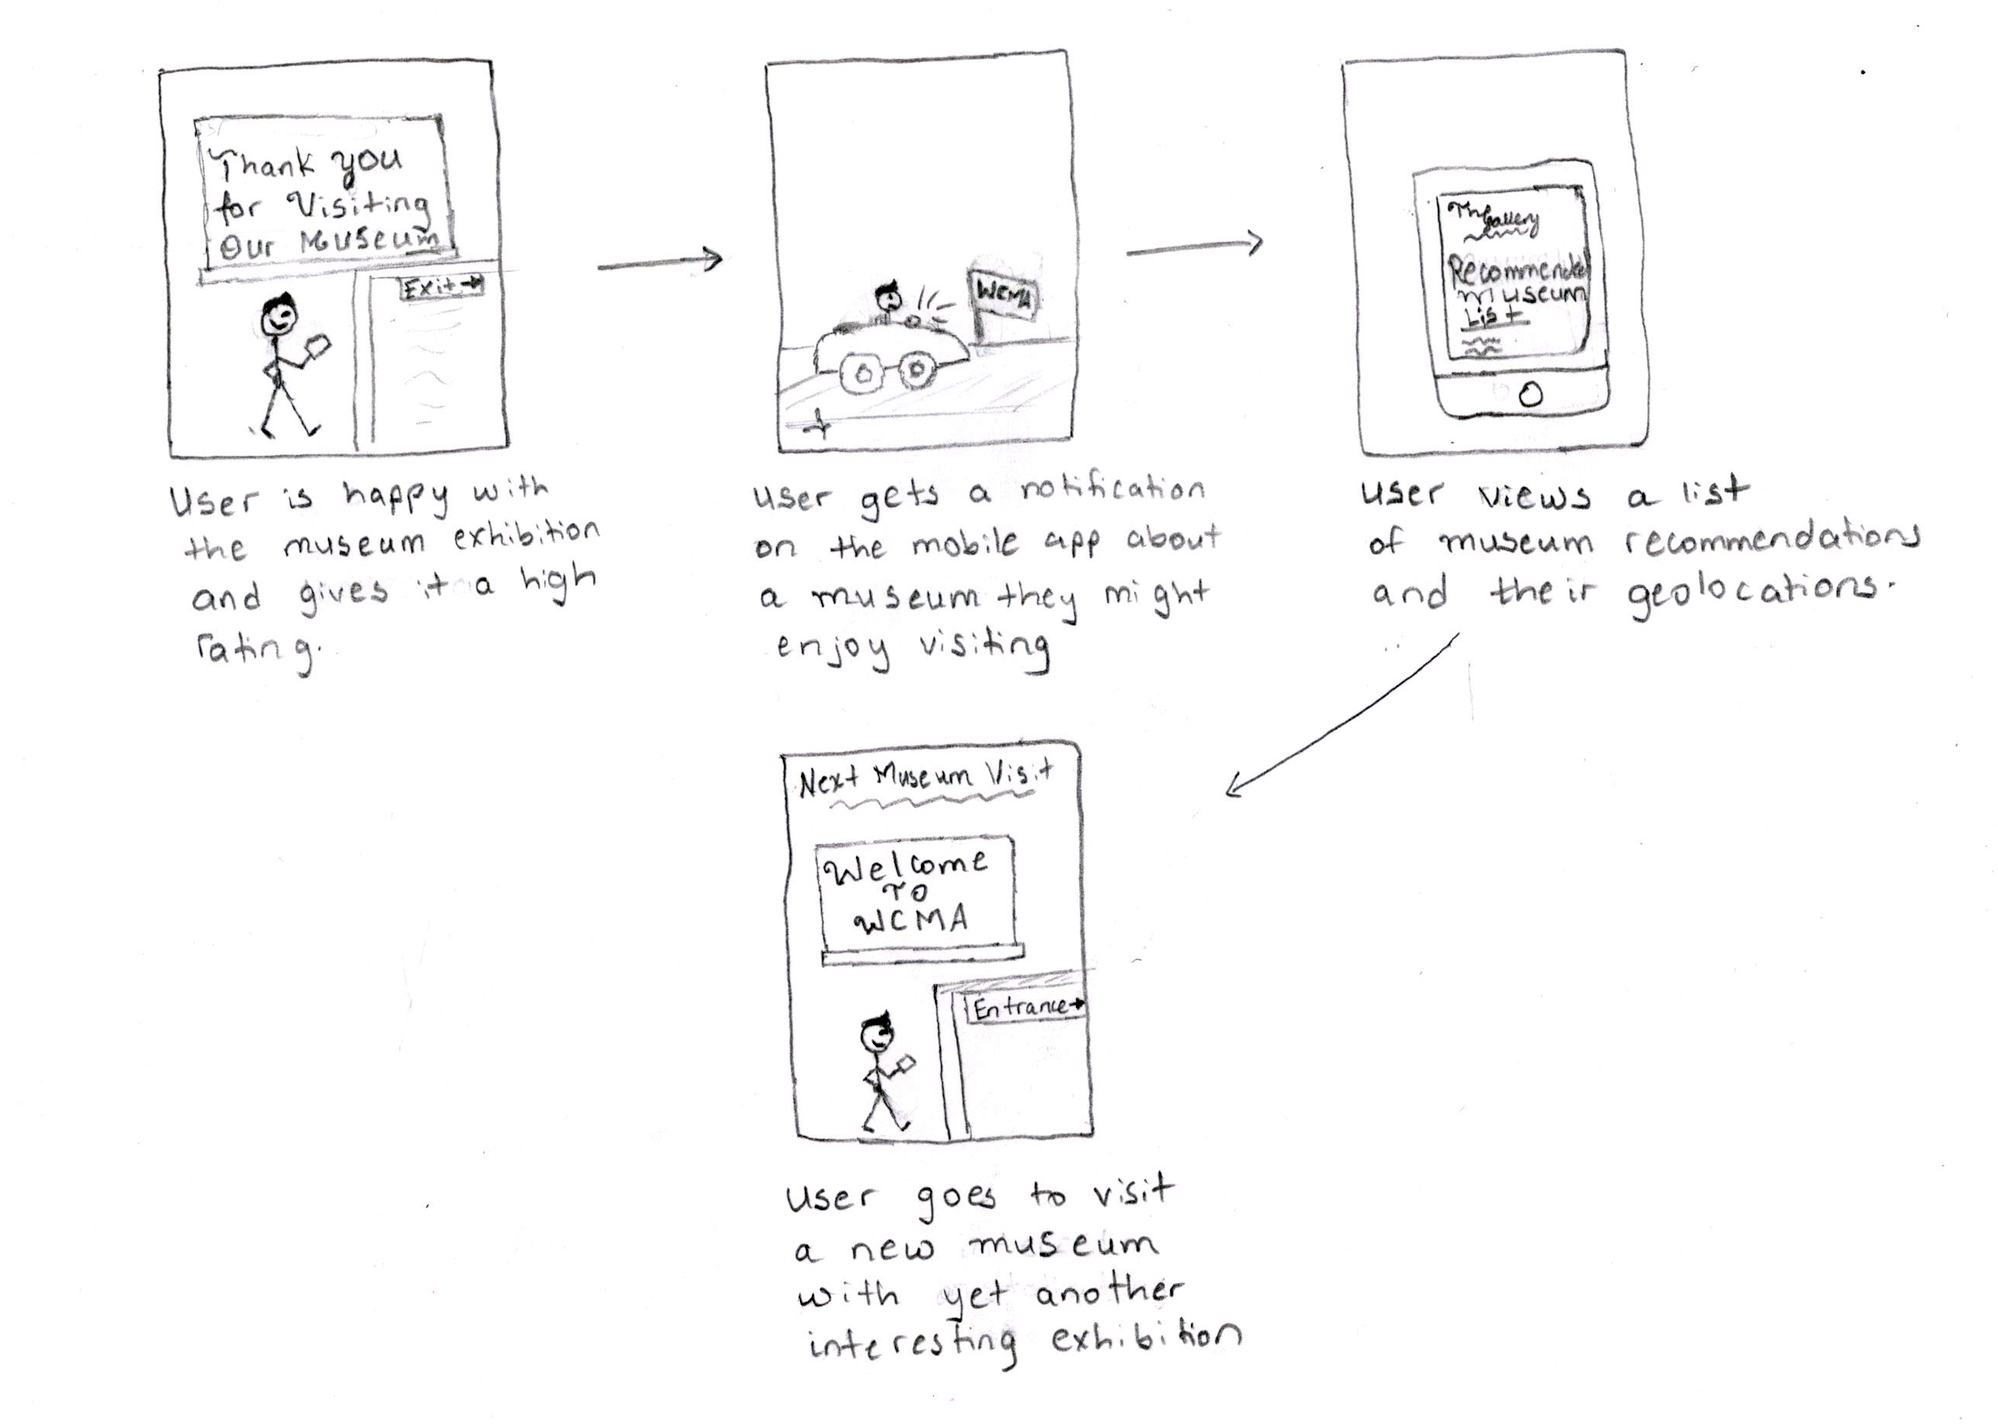 Thank you
for Visiting
Our Museum
Exit
User is happy with
the museum exhibition
and gives it a high
rating.
WCMA
User gets a notification
on the mobile app about
a museum they might
enjoy visiting
The Gallery
Recommended
museum
List
User views a list
of museum recommendations
and their geolocations.
Next Museum Visit
Welcome
TO
WCMA
Entrance
User goes to visit
a new museum
with yet another
interesting exhibition